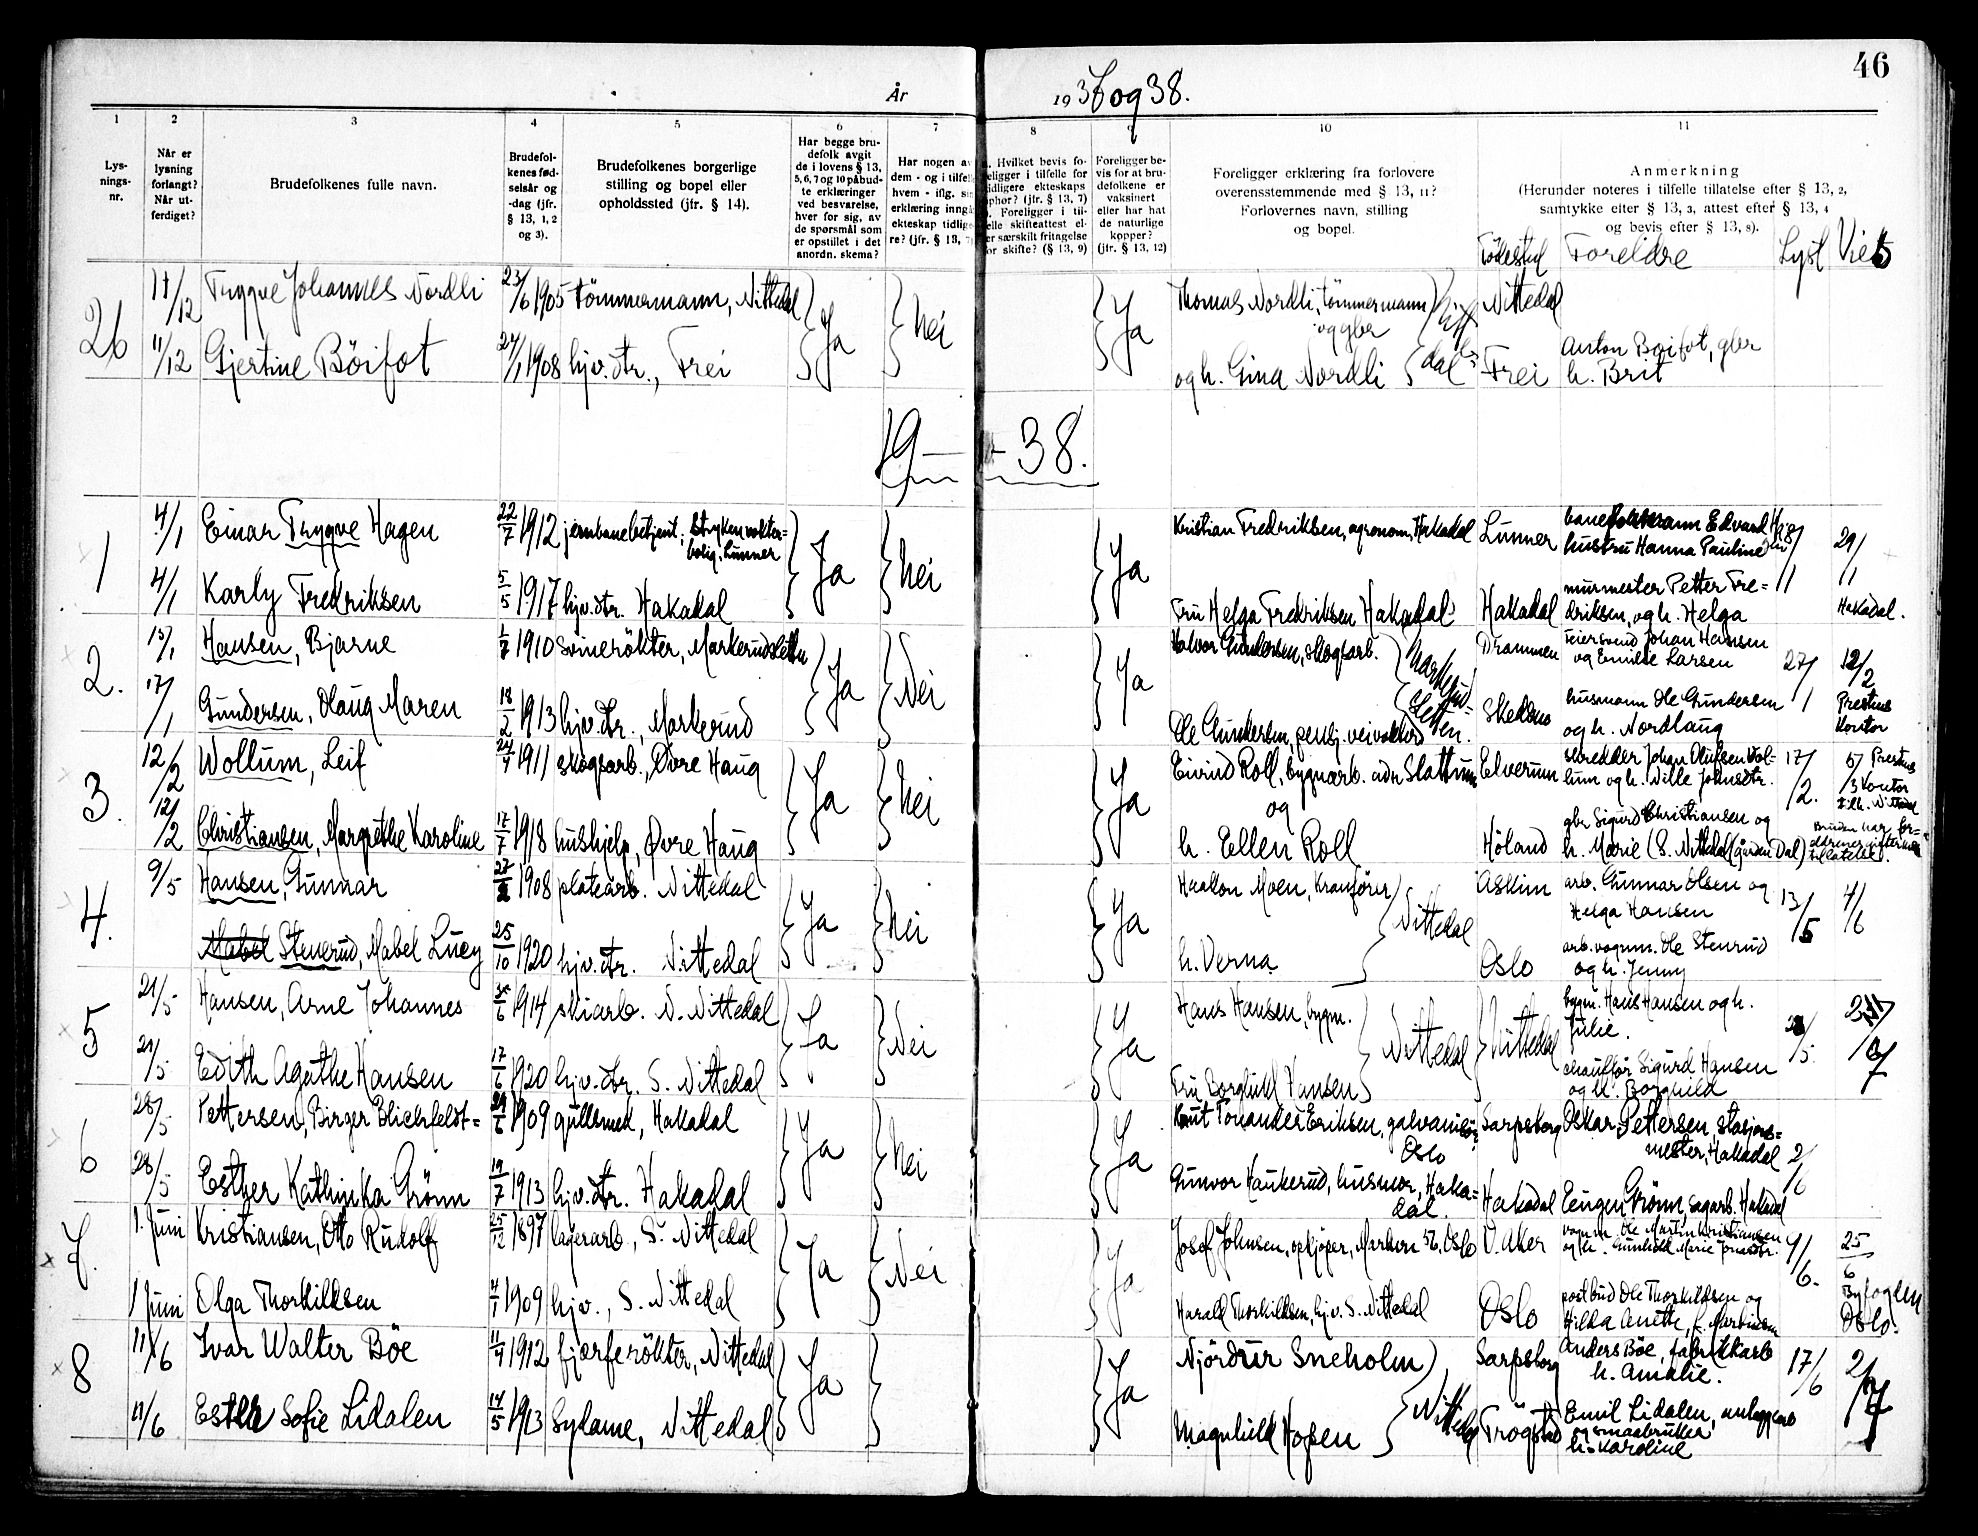 46
År 1937 og 38.
1 2 3 4 5 6 7 8 9 10 11
Lys-
nings-
nr.
Når er
lysning
forlangt?
Når ut-
ferdiget?
Brudefolkenes fulle navn.
Brudefol-
kenes fød-
selsår og
-dag (jfr.
§ 13, 1, 2
og 3).
Brudefolkenes borgerlige
stilling og bopel eller
opholdssted (jfr. § 14).
Har begge bru-
defolk avgit
de i lovens § 13,
5, 6, 7 og 10 påbud-
te erklæringer
ved besvarelse,
hver for sig, av
de spørsmål som
er opstillet i det
anordn. skema?
Har nogen av
dem - og i tilfel
hvem - iflg. si
erklæring inngå
ekteskap tidlige
re? (jfr. § 13, 7)
. Hvilket bevis fo-
eligger i tilfelle for
idligere ekteskaps
phør? (jfr. § 13, 7)
. Foreligger i til-
elle skifteattest el-
er særskilt fritagelse
or skifte? (§ 13, 9)
Foreligger be-
vis for at bru-
defolkene er
vaksinert
eller har hat
de naturlige
kopper?
(jfr. § 13, 12)
Foreligger erklæring fra forlovere
overensstemmende med § 13, 11?
Forlovernes navn, stilling
og bopel.
Anmerkning
(Herunder noteres i tilfelle tillatelse efter § 13, 2,
samtykke efter § 13, 3, attest efter § 13, 4
og bevis efter § 13, 8).
Fødested Foreldre Lyst Viet
26 11/12 Trygve Johannes Nordli 23/6 1905 tømmermann, Nittedal Ja Nei Ja Thomas Nordli, tømmermann Nittedal
og gbr
11/12 Gjertine Böifot 24/1 1908 hjv. dtr., Frei og h. Gina Nordli Frei Anton Boifot, gbr
h. Brit
19 - - 38.
1 4/1 Einar Trygve Hagen 22/7 1912 jernbanebetjent, Stryken vokter-
bolig, Lunner Ja Nei Ja Kristian Fredriksen, agronom, Hakadal Lunner baneformann Edvard
hustru Hanna Pauline 29/1
4/1 Karly Fredriksen 5/5 1917 hjv. dtr. Hakadal Fru Helga Fredriksen Hakadal Hakadal murmester Petter Fre-
driksen, og h. Helga Hakadal.
2. Hansen, Bjarne 1/7 1910 Svinerökter, Markerudsletten Ja Nei Ja Halvor Gundersen, skogsarb. Drammen feiersvend Johan Hansen
og Emilie Larsen 27/1 12/2
17/1 Gundersen, Olaug Maren 18/2 1913 hjv. dtr., Markerud Ole Gundersen, pensj. veivokter Markerud-
sletten. Skedsmo husmann Ole Gundersen
og h. Nordlaug Prestens
Kontor
3. 12/2 Wollum, Leif 24/4 1911 skogsarb., Øvre Haug Ja Nei Ja Eivind Roll, bygnarb. adr Slattum Elverum skredder Johan Olufsen Wol-
lum og h. Nille Johnsdtr. 17/2. 5/3 Prestens
Kontor
og
12/2 Christiansen, Margrethe Karoline 17/7 1918 hushjelp, Øvre Haug h. Ellen Roll Höland gbr Sigurd Christiansen og
h. Marie (S. Nittedal (gården Dal) Bruden har for-
tillatelse.
4. 9/5 Hansen, Gunnar 1908 platearb. Nittedal Ja Nei Ja Haakon Moen, Kranförer Nittedal Askim arb. Gunnar Olsen og
Helga Hansen 13/5 4/6
Stenerud, Mabel Lucy 25/10 1920 hjv. dtr. Nittedal h. Verna Oslo arb. vognm. Ole Stenrud
og h. Jenny
5 21/5 Hansen, Arne Johannes 1914 skiarb. N. Nittedal Ja Nei Ja Hans Hansen, bygm. Nittedal Nittedal bygm. Hans Hansen og h.
Julie.
21/5 Edith Agathe Hansen 17/6 1920 hjv. dtr. S. Nittedal Fru Borghild Hansen chauffør Sigurd Hansen
og h. Borghild
6 28/5 Pettersen, Birger Blichfeldt- 1909 gullsmed, Hakadal Ja Nei Ja Knut Tonander Eriksen, galvanisör
Oslo Sarpsborg Oskar Pettersen stasjons-
mester, Hakadal 2/6
28/5 Esther Kathinka Grönn 19/7 1913 hjv. dtr. Hakadal Gunvor Haukerud, husmor, Haka-
dal. Hakadal Eugen Grönn, sagarb. Hakadal
7. 1. Juni Kristiansen, Otto Rudolf 25/12 1897 lagerarb., S. Nittedal Ja Nei Ja Josef Johnsen, opkjöper, Markvn 56, Oslo V. Aker vognm. Ole Martin Kristiansen
og h. Gunhild Marie 4/6. 25/6
1 Juni Olga Thorkildsen 4/1 1909 hjv., S. Nittedal Harald Thorkildsen, hjv. S. Nittedal Oslo postbud Ole Thorkildsen og
Hilda Anette, f. Martinsen Byfogden
Oslo.
8 11/6 Ivar Walter Böe 11/4 1912 fjærferökter, Nittedal Ja Ja Njördur Sneholm Nittedal Sarpsborg Anders Böe, fabrikkarb
h. Amalie. 17/6 2/7
11/6 Ester Sofie Lidalen 14/5 1913 Sydame, Nittedal Magnhild Hofsen Trögstad Emil Lidalen, anleggsarb
og smaabruker
h. Karoline